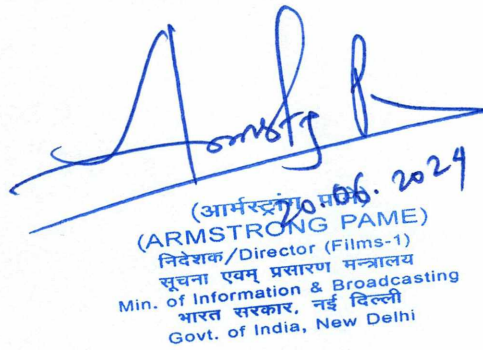 Armstg P
20.06.2024
(आर्मस्ट्रांग पामे)
(ARMSTRONG PAME)
निदेशक/Director (Films-1)
सूचना एवम् प्रसारण मन्त्रालय
Min. of Information & Broadcasting
भारत सरकार, नई दिल्ली
Govt. of India, New Delhi